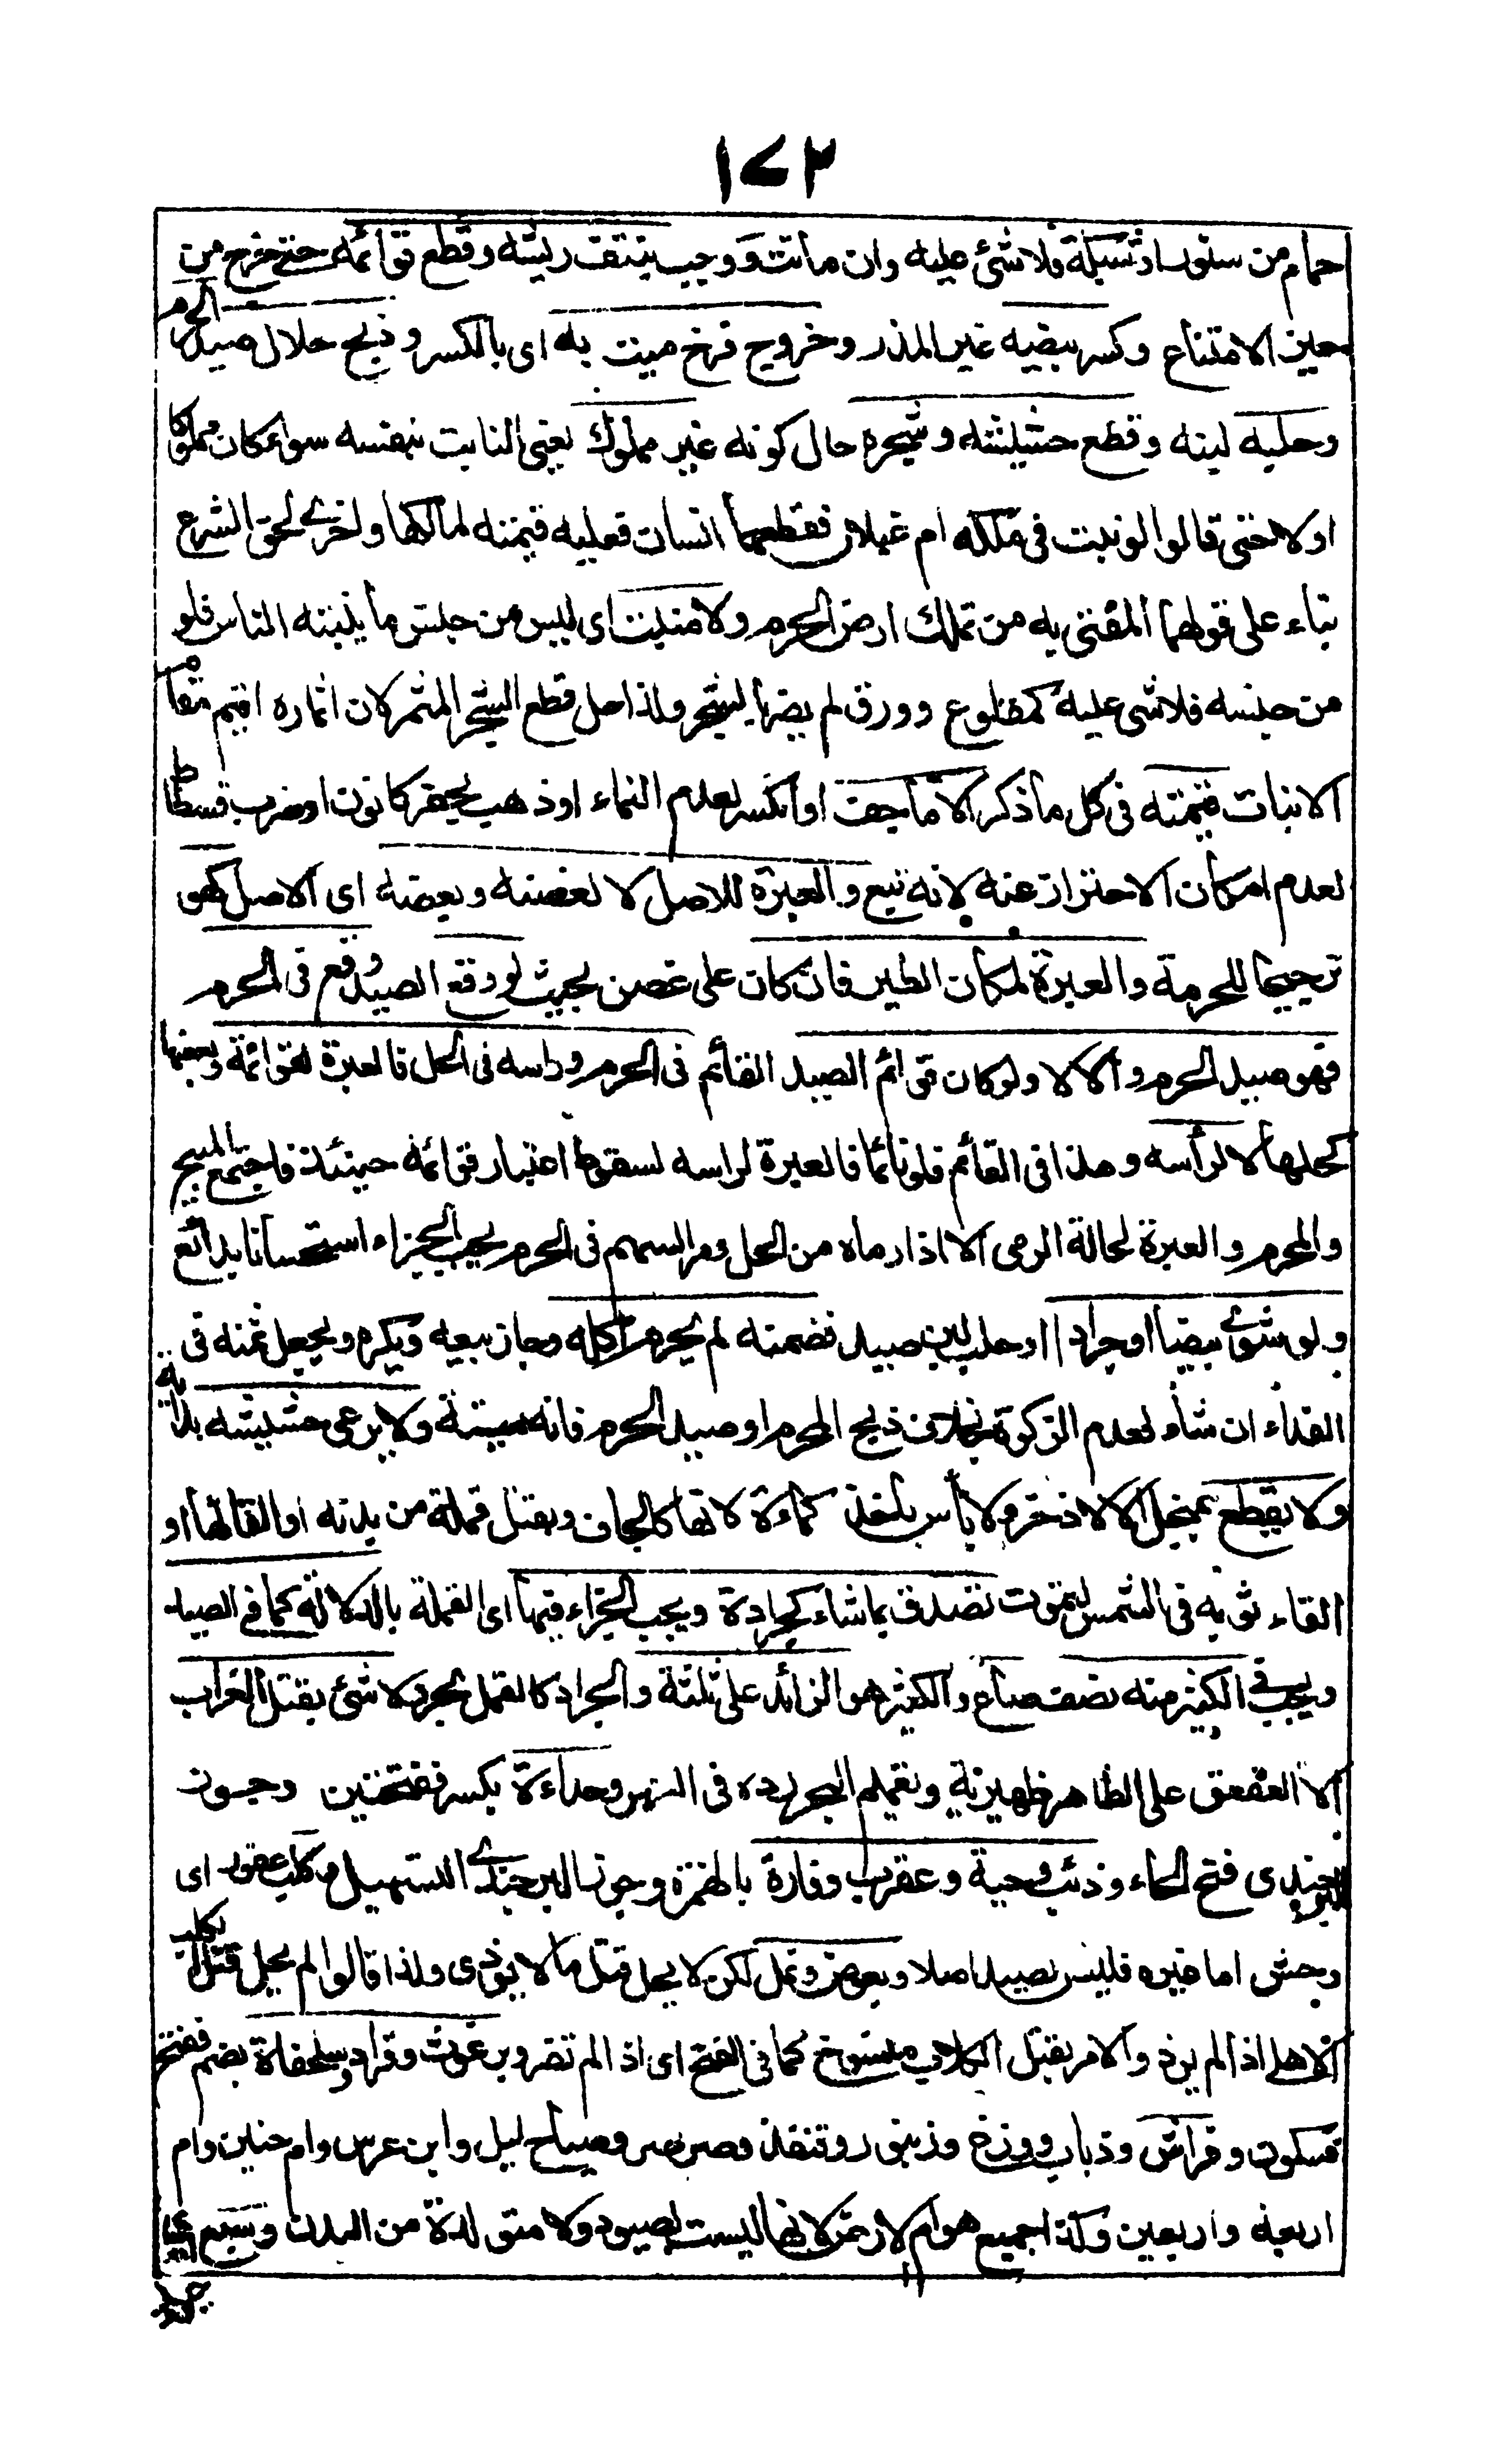 ١٧٣
حمام من سنور او شبكة فلا شئ عليه وان ماتت ووجب بنتف ريشه وقطع قوائمه حتى خرج من
حين الامتناع وكسر بيضه غير المذر وخروج فرخ ميت به اى بالكسر وذبح حلال صيد الحرم
وحلبه لبنه وقطع حشيشه وشجره حال كونه غير مملوك يعنى النابت بنفسه سواء كان مملوكا
اولا حتى قالوا لو نبت فى ملكه ام غيلان فقطعها انسان فعليه قيمته لمالكها واخرى لحق الشرع
بناء على قولهما المفتى به من تملك ارض الحرم ولا منبت اى ليس من جنس ما ينبته الناس فلو
من جنسه فلا شى عليه كمقلوع وورق لم يضر بالشجر ولذا حل قطع الشجر المثمر لان اثماره اقيم مقام
الانبات قيمته فى كل ما ذكر الا ما جف او انكسر لعدم النماء او ذهب بحفر كانون او ضرب فسطاط
لعدم امكان الاحتراز عنه لانه تبع والعبرة للاصل لا لغصنه وبعضه اى الاصل كهو
ترجيحا للحرمة والعبرة لمكان الطير فان كان على غصن بحيث لو وقع الصيد وقع فى الحرم
فهو صيد الحرم والا لا ولو كان قوائم الصيد القائم فى الحرم وراسه فى الحل فالعبرة لقوائمه وبعضها
ككلها لا لرأسه وهذا فى القائم فلو نائما فالعبرة لراسه لسقوط اعتبار قوائمه حينئذ فاجتمع المبيح
والمحرم والعبرة لحالة الرمى الا اذا رماه من الحل ومر السهم فى الحرم يجب الجزاء استحسانا بدائع
ولو شوى بيضا او جرادا او حلب لبن صيد فضمنه لم يحرم اكله وجاز بيعه ويكره ويجعل ثمنه فى
الفداء ان شاء لعدم الذكوة بخلاف ذبح المحرم او صيد الحرم فانه ميتة ولا يرعى حشيشه بدابة
ولا يقطع بمنجل الا الاذخر ولا بأس باخذ كماءة لانها كالجاف وبقتل قملة من بدنه او القائها او
القاء ثوبه فى الشمس لتموت تصدق بما شاء كجرادة ويجب الجزاء فيها اى القملة بالدلالة كما فى الصيد
ويجب فى الكثير منه نصف صاع والكثير هو الزائد على ثلثة والجراد كالقمل بحر ولا شئ بقتل الغراب
الا العقعق على الظاهر ظهيرية وتعميم البحر رده فى النهر وحداءة بكسر ففتحتين وجوز
البرجندى فتح الحاء وذئب وحية وعقرب وفارة بالهمزة وجوز البرجندى التسهيل وكلب عقور اى
وحش اما غيره فليس بصيد اصلا وبعوض ونمل لكن لا يحل قتل ما لا يوذى ولذا قالوا لم يحل قتل الكلب
الاهلى اذا لم يوذ والامر بقتل الكلاب منسوخ كما فى الفتح اى اذا لم تضر وبرغوث وقراد وسلحفاة بضم ففتح
فسكون وفراش وذباب ووزغ وزنبور وقنفذ وصرصر وصياح ليل وابن عرس وام حنين وام
اربعة واربعين وكذا جميع هوام الارض لانها ليست بصيود ولا متولدة من البدن وسبع